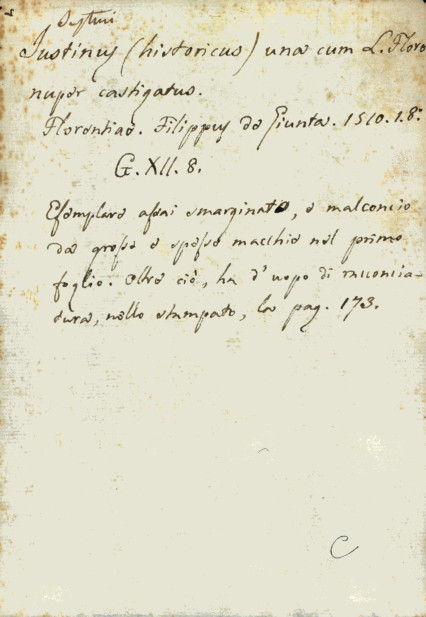 Justinus (historicus) una cum L. Floro
nuper castigatus.
Florentiae. Filippus de Giunta. 1510. 1. 8.º
G. XII. 8.
Esemplare assai smarginato, e malconcio
da grosse e spesse macchie nel primo
foglio. Oltre ciò, ha d'uopo di racconcia-
tura, nello stampato, la pag. 173.
C